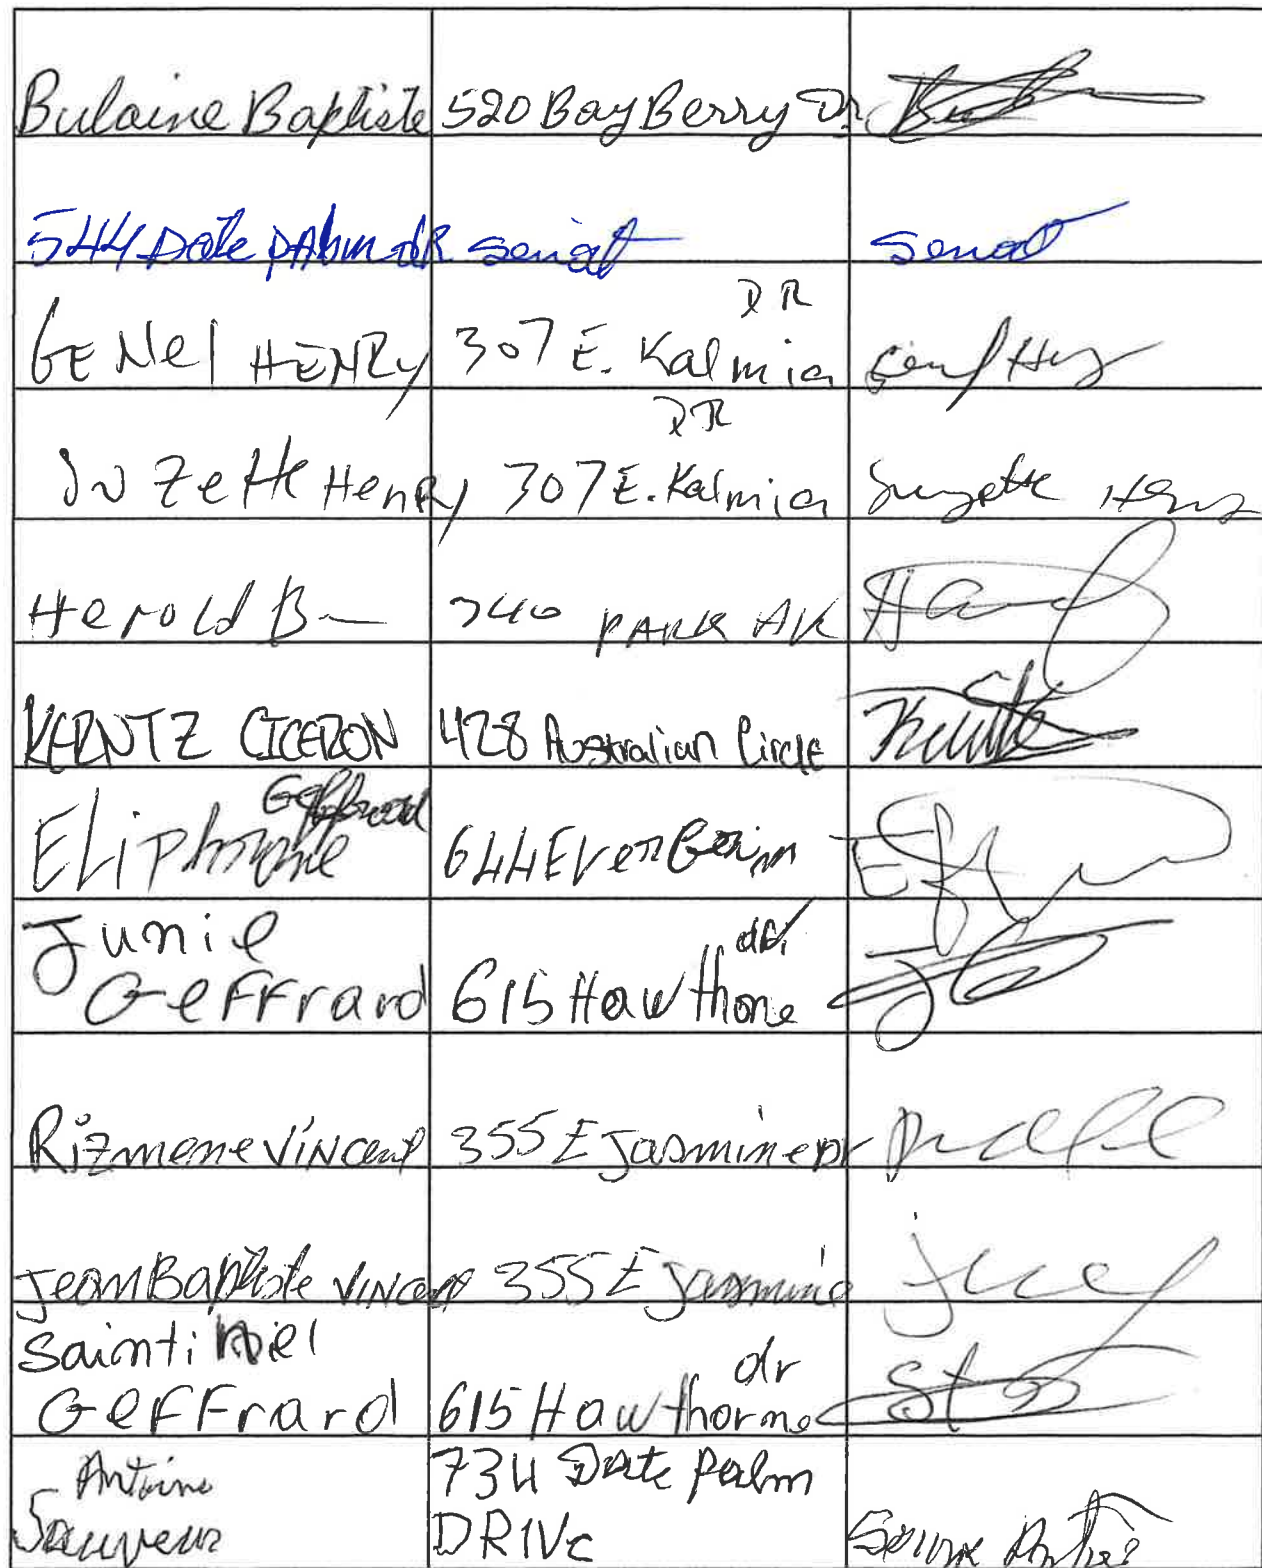 Bulaine Baptiste 520 BayBerry Dr
544 Date pAlm dR senat senat
GENel HENRy 307 E. Kalmia DR
SuZette HenRy 307 E. Kalmia DR Suzette Henry
Herold B 740 PARK
KERNTZ CICERON 428 Australian Circle
Geffrard
644
Junie
Geffrard 615 Hawthone dr.
Rizmene ViNcent 355 E Jasmine Dr
Jean Baptiste Vincent 355 E Jasmine
Sainti
Geffrard 615 Hawthorne dr
Antoine 734 Date palm
Sauveur DRIVe